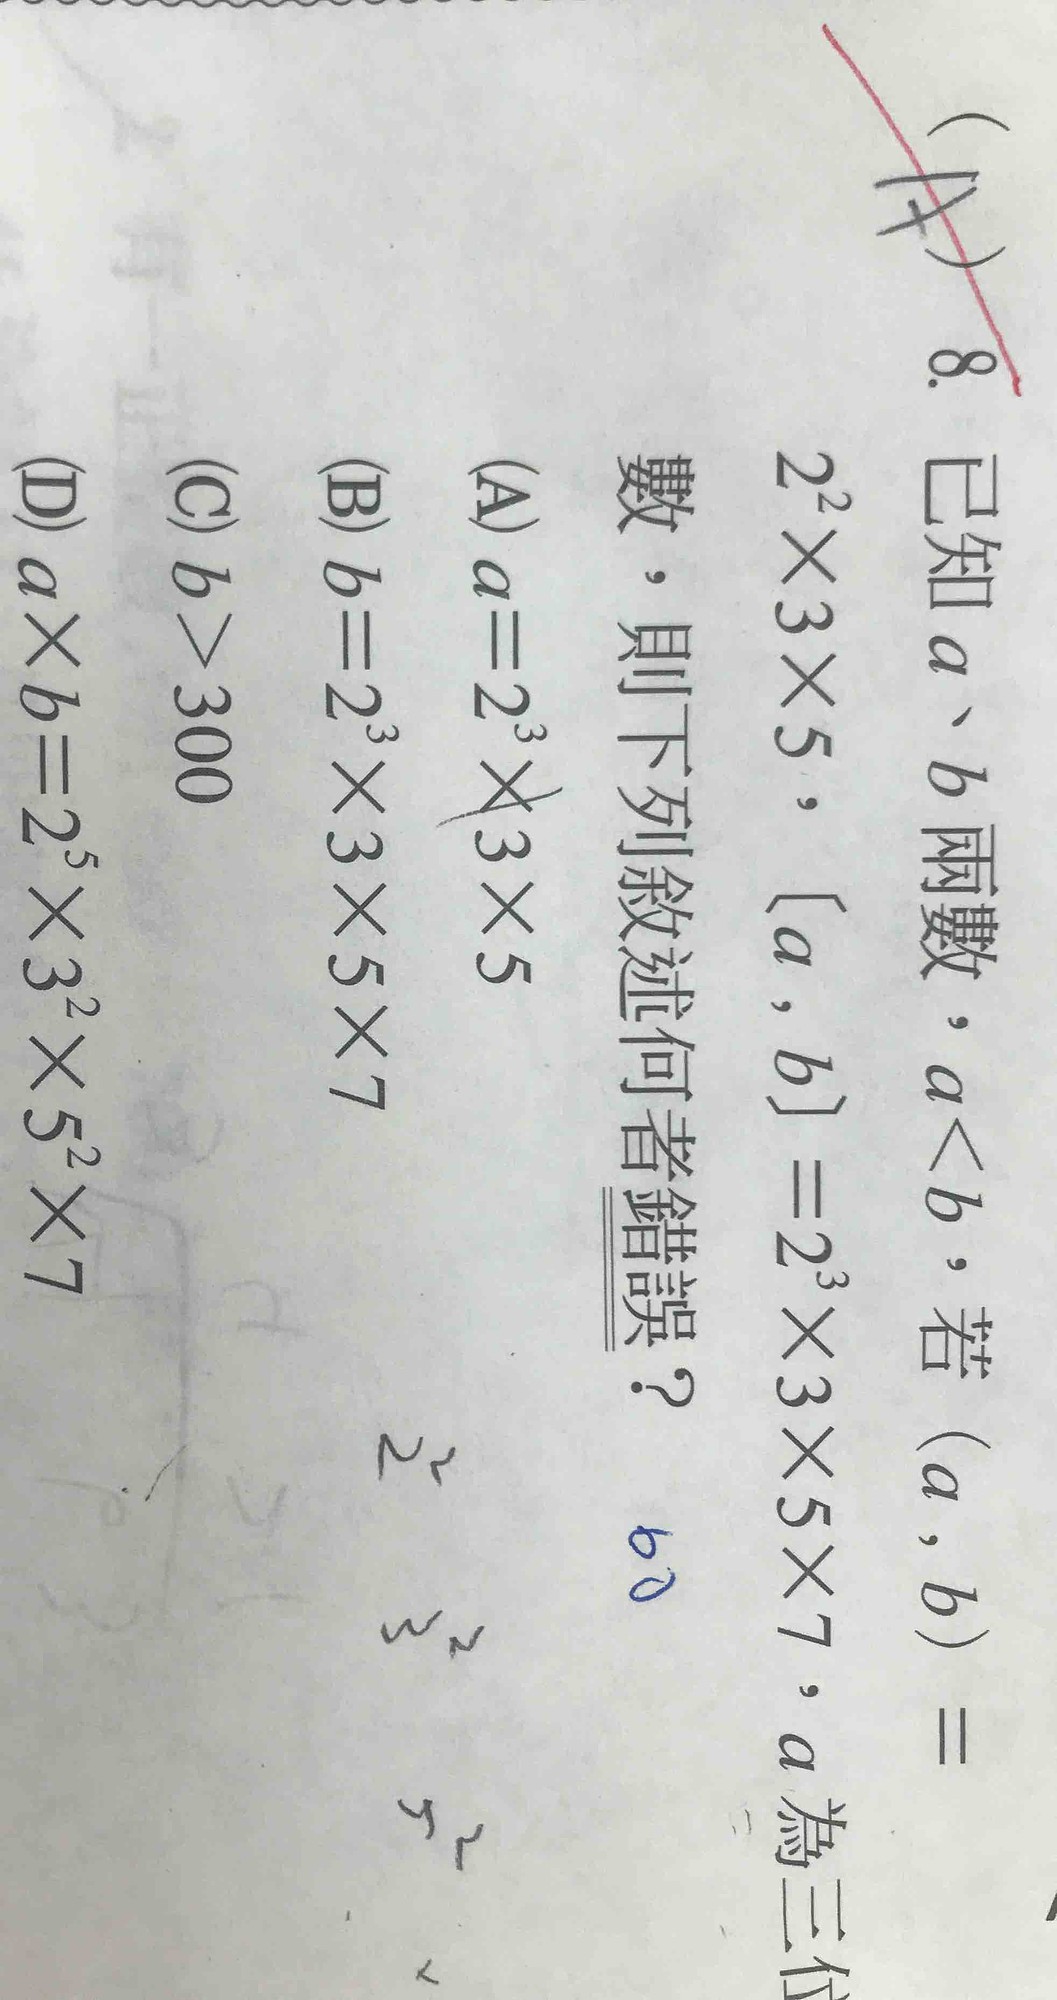 (A) 8. 已知 a、b 兩數，a<b，若 (a , b) =
2²×3×5，〔a , b〕=2³×3×5×7，a 為三位
數，則下列敘述何者錯誤？ 60
(A) a=2³×3×5
(B) b=2³×3×5×7
(C) b>300
(D) a×b=2⁵×3²×5²×7
2² 3² 5²